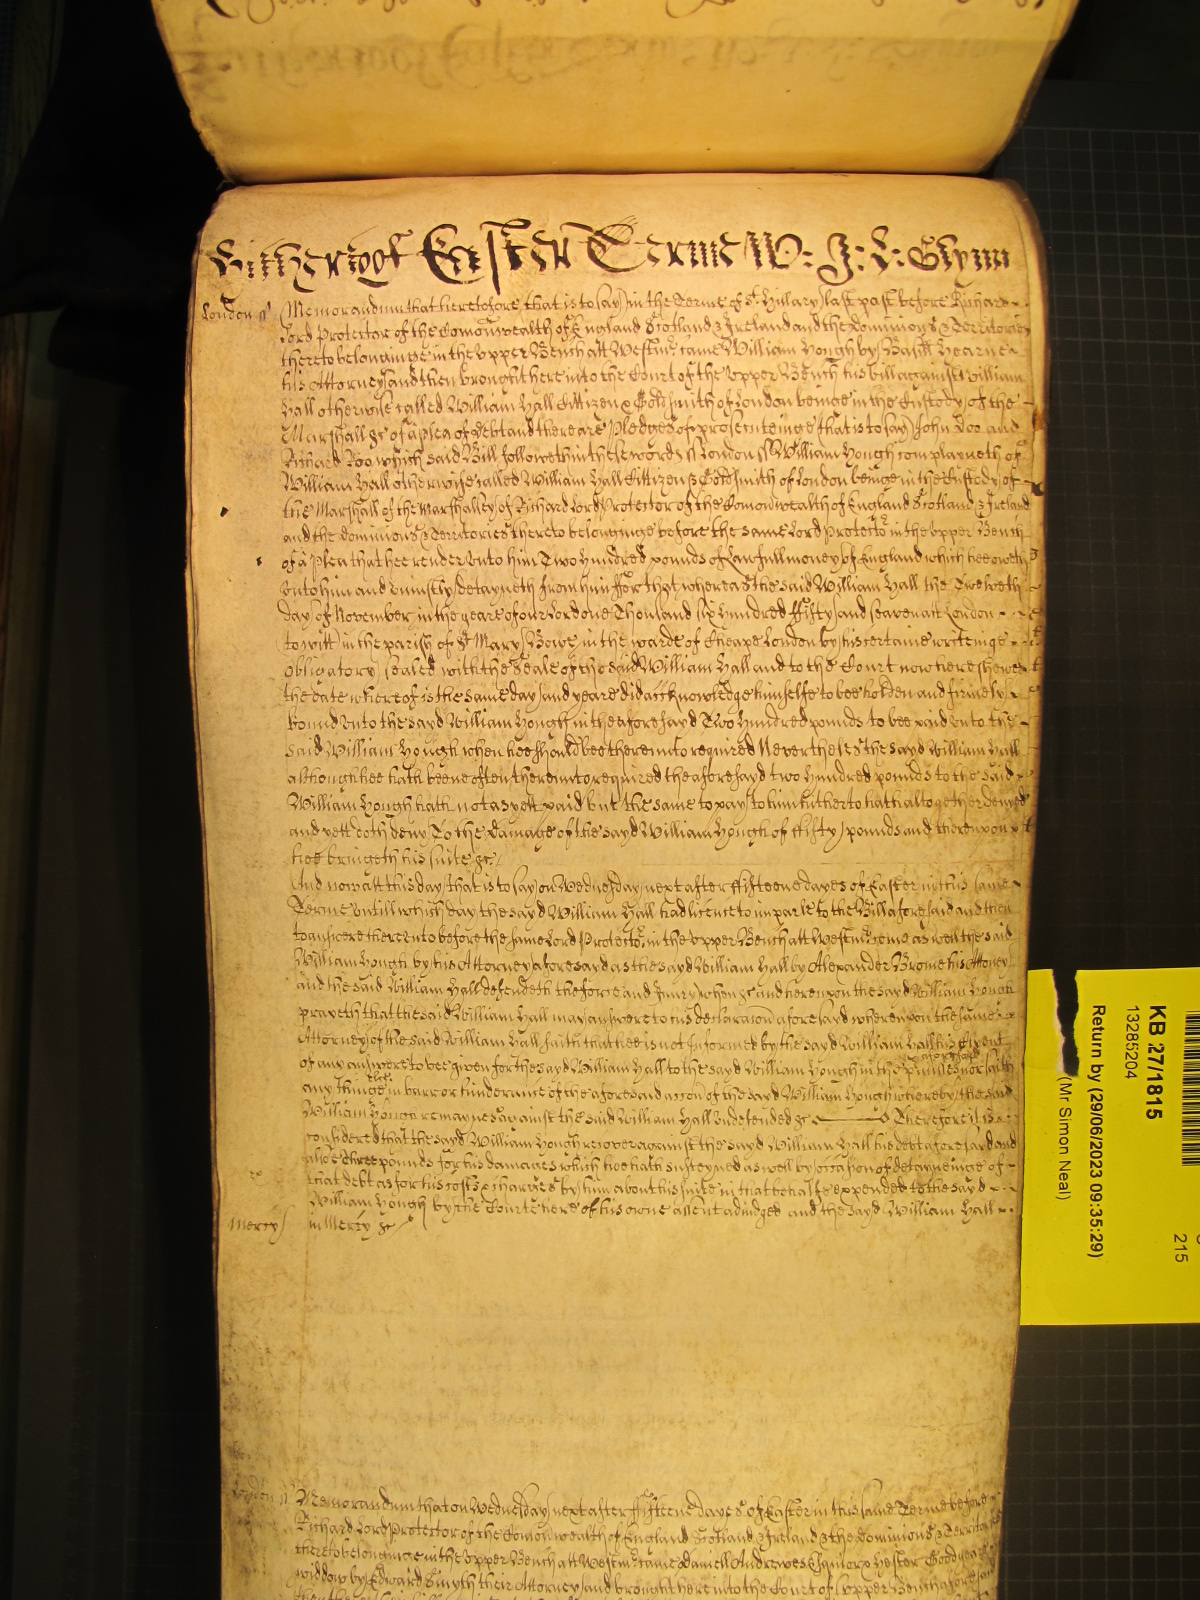 Witherigge Easter Terme W: J: J: Glynn
London ss Memorandum that heretofore that is to say in the Terme of St Hillary last past before Richard
Lord Protector of the Comonwealth of England Scotland & Ireland and the Dominions & Territories
thereto belonginge in the vpper Bench att Westmr came William Hough by Basill Hearne
his Attorney and then brought here into the Court of the vpper Bench his bill against William
Hall otherwise called William Hall Cittizen & Goldsmith of London beinge in the Custody of the
Marshall &c of a plea of debt and there are Pledges of prosecuteinge that is to say John Doo and
Richard Roo which said Bill followeth in these words ss London ss William Hough complayneth of
William Hall otherwise called William Hall Cittizen & Goldsmith of London beinge in the Custody of
the Marshall of the Marshalsey of Richard Lord Protector of the Comonwealth of England Scotland & Ireland
and the dominions & Territories thereto belonginge before the same Lord Protector in the vpper Bench
of a Plea that hee render vnto him Two Hundred pounds of lawfull money of England which hee oweth
vnto him and vniustly detayneth from him ffor that whereas the said William Hall the Twelveth
day of November in the yeare of our Lord one Thousand six hundred ffifty and seaven att London
to witt in the parish of St Mary Bowe in the warde of Cheape London by his certaine writeinge
obligatory sealed with the Seale of the said William Hall and to the Court now here shewed
the date whereof is the same day and yeare did acknowledge himselfe to bee holden and firmely
bound vnto the sayd William Hough in the aforesayd Two hundred pounds to bee paid vnto the
said William Hough when hee should bee therevnto required Neverthelesse the sayd William Hall
although hee hath beene often therevnto required the aforesayd two hundred pounds to the said
William Hough hath not as yett paid but the same to pay to him hitherto hath altogether denyed
and yett doth deny To the damage of the sayd William Hough of ffifty pounds and therevpon
hee bringeth his suite &c
And now att this day that is to say on Wednesday next after ffifteene dayes of Easter in this same
Terme vntill which day the sayd William Hall had licence to imparle to the Bill aforesaid and then
to answere therevnto before the same Lord Protector in the vpper Bench att Westmr come as well the said
William Hough by his Attorney aforesayd as the sayd William Hall by Alexander Brome his Attorney
and the said William Hall defendeth the force and Iniury when &c and herevpon the sayd William Hough
prayeth that the said William Hall may answere to his declaracon aforesayd wherevpon the same
Attorney of the said William Hall saith that hee is not Informed by the sayd William Hall his Clyent
of any answere to bee given for the sayd William Hall to the sayd William Hough in the premisses aforesayd nor saith
any thinge else in barr or hinderance of the aforesayd accon of the sayd William Hough whereby the said
William Hough remaynes against the said William Hall vndefended &c Therefore it is
considered that the sayd William Hough recover against the sayd William Hall his debt aforesayd and
alsoe three pounds for his damages which hee hath susteyned as well by occasion of detayneinge of
that debt as for his costs & charges by him about his suite in that behalfe expended to the sayd
William Hough by the Court here of his owne assent adiudged and the sayd William Hall
Mercy in Mercy &c
London ss Memorandum that on Wednesday next after ffifteene dayes of Easter in this same Terme before
Richard Lord Protector of the Comonwealth of England Scotland & Ireland & the Dominions & Territories
thereto belonginge in the vpper Bench att Westmr came Daniell Andrewes Esquior & Hester Goodyeare
widdow by Edward Smyth their Attorney and brought here into the Court of vpper Bench aforesaid
KB 27/1815
13285204
Return by (29/06/2023 09:35:29)
(Mr Simon Neal)
215